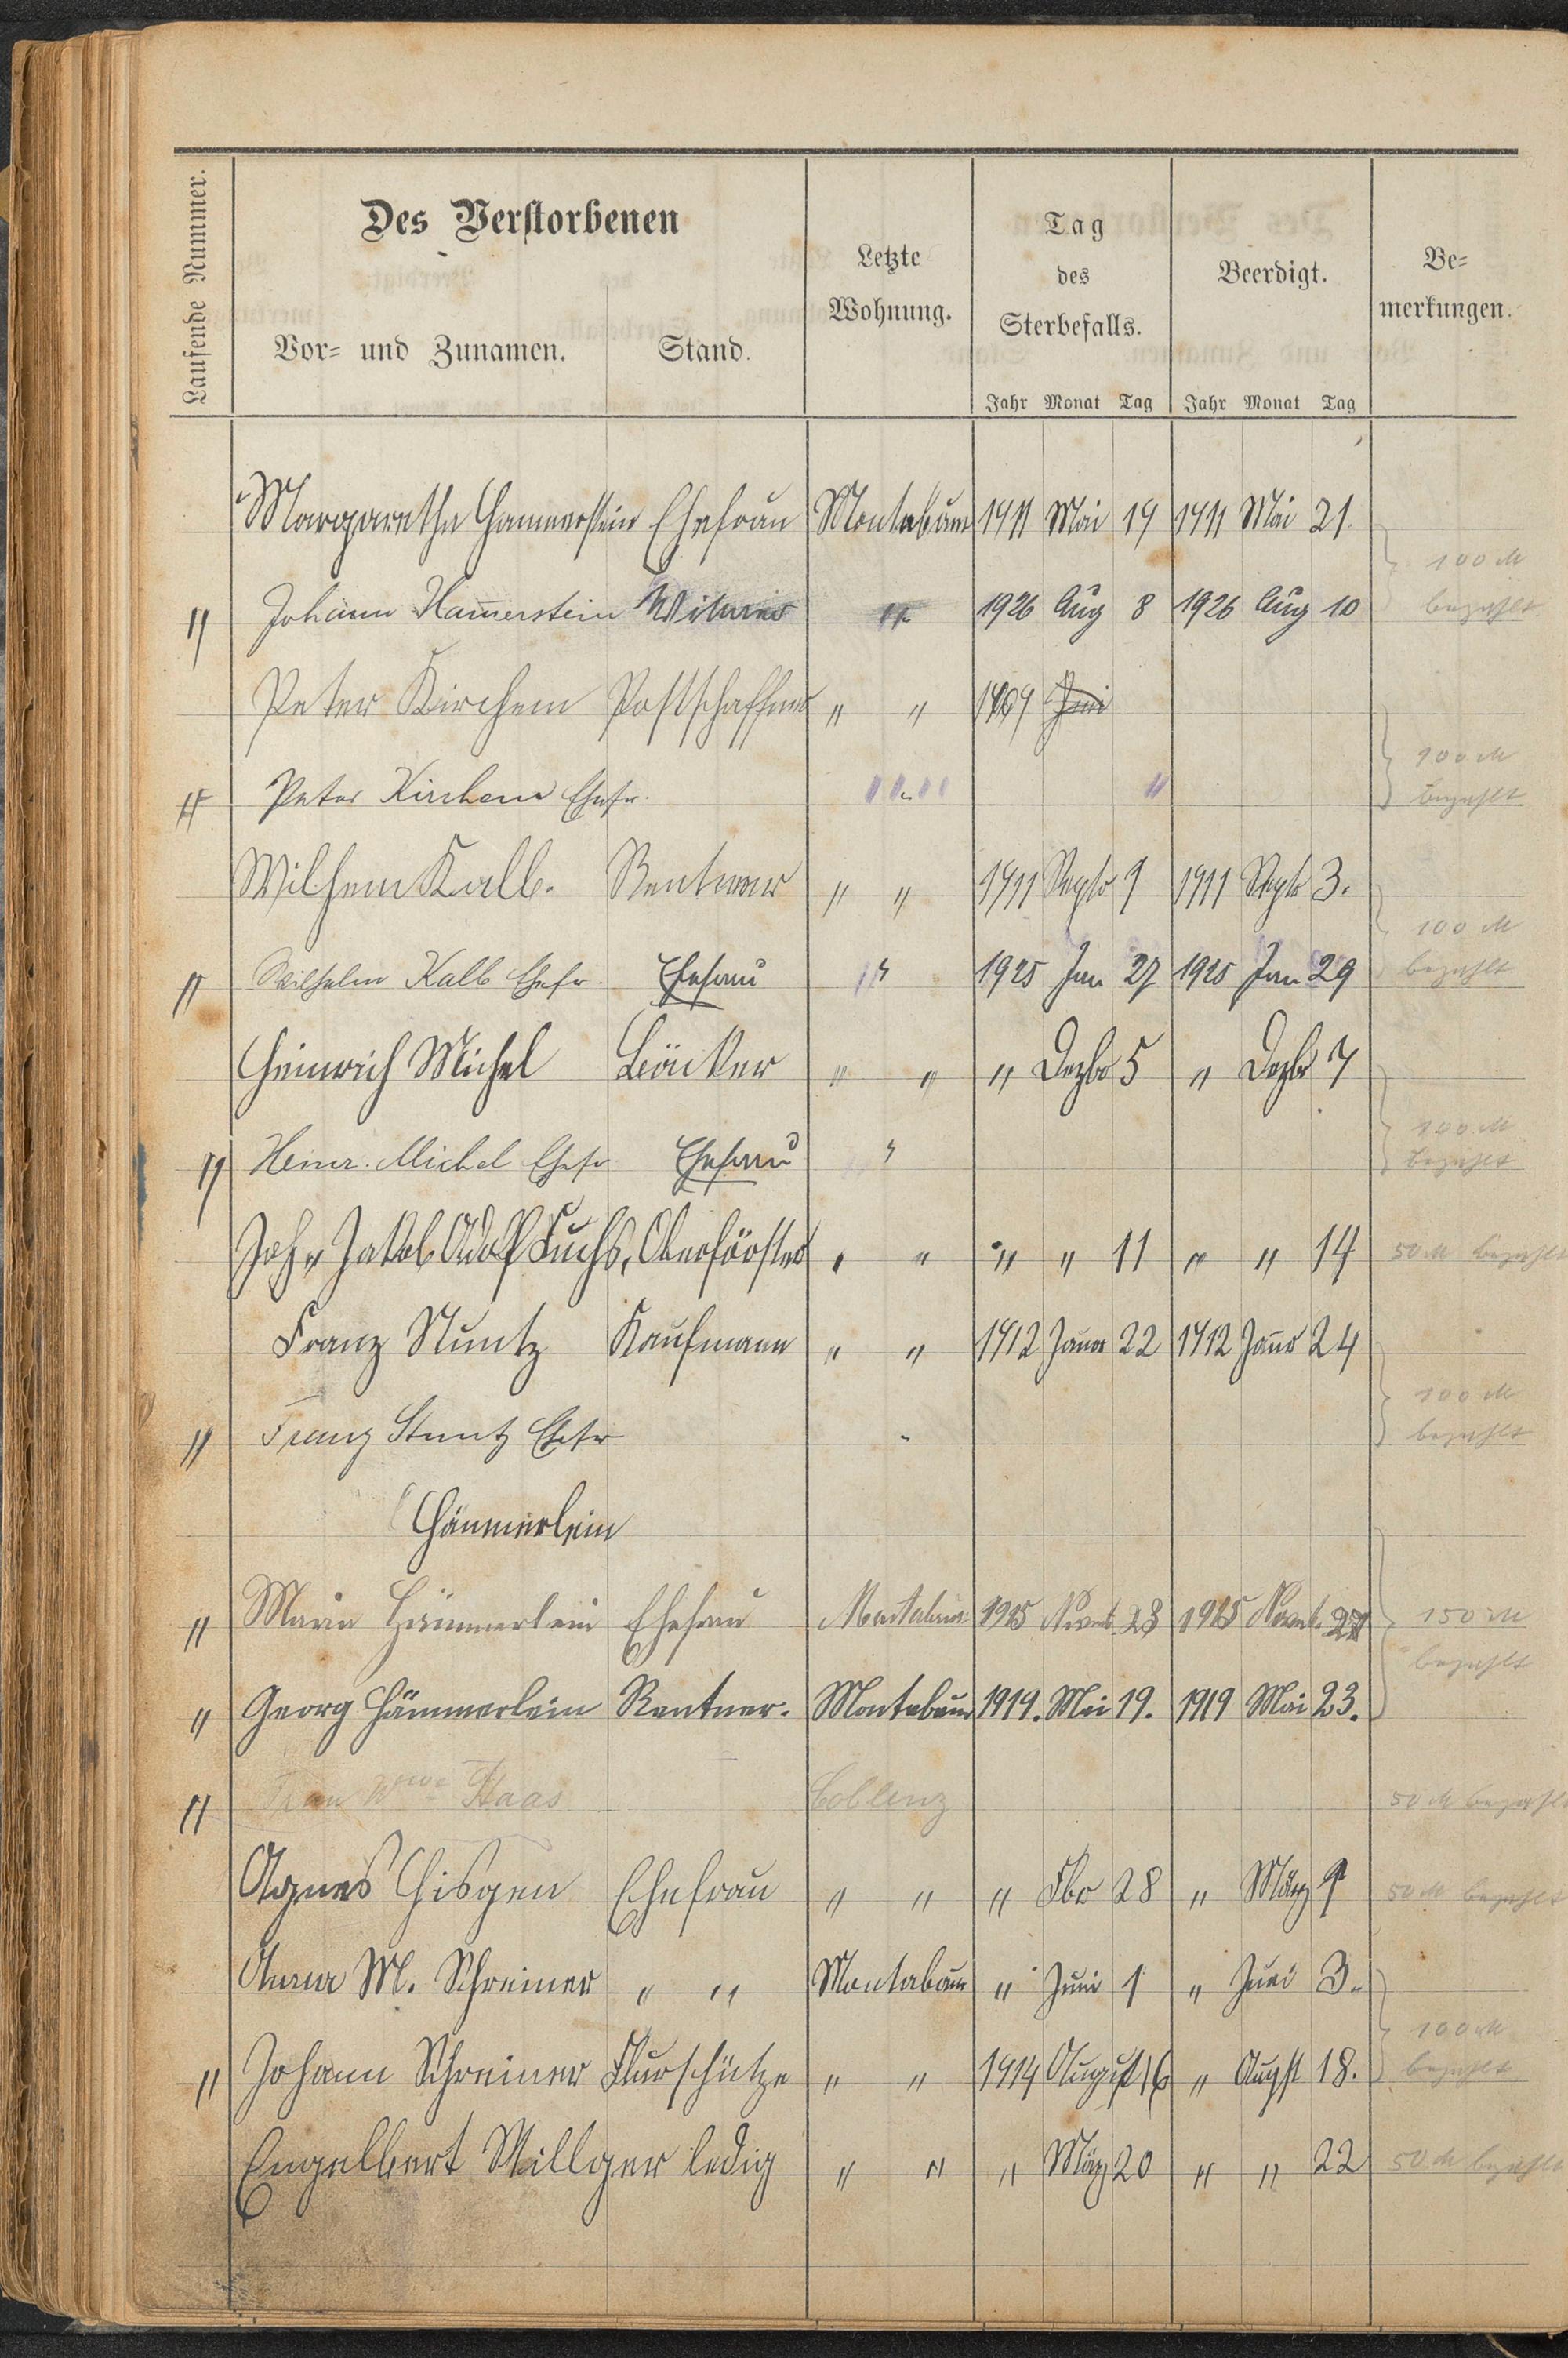 Laufende Nummer.
Des Verstorbenen
Vor= und Zunamen. Stand.
Letzte Wohnung.
Tag des Sterbefalls.
Beerdigt.
Be= merkungen.
Jahr Monat Tag Jahr Monat Tag
Margaretha Hammerstein Ehefrau Montabaur 1911 Mai 19 1911 Mai 21.
100 M
" Johann Ham̄erstein " 1926 Aug 8 1926 Aug 10 bezahlt
Peter Kirchem Postschaffner " " 1909 Juni
100 M
" Peter Kirchem Ehefr. " " " bezahlt
Wilhem Kalb. Rentner " " 1911 Septr 1 1911 Septr 3.
100 M
" Wilhelm Kalb Ehefr. Ehefrau " 1925 Jan 27 1925 Jan 29 bezahlt
Heinrich Michel Bäcker " " " Dezbr 5 " Dezbr 7
100 M
" Heinr. Michel Ehefr. Ehefrau " bezahlt
Joh. Jakob Adolf Fuchs, Oberförster " " " " 11 " " 14 50 M bezahlt
Franz Stuntz Kaufmann " " 1912 Januar 22 1912 Janr 24
100 M
" Franz Stuntz Ehefr " bezahlt
Hämmerlein
" Maria Hämmerlein Ehefrau Montabaur 1915 Novemb. 23 1915 Novemb. 150 M
bezahlt
" Georg Hämmerlein Rentner. Montabaur 1919. Mai 19. 1919 Mai 23.
" Frau Wwe Haas Coblenz 50 M bezahlt
Agnes Hisgen Ehefrau " " " Fbr 28 " März 50 M bezahlt
Anna M. Schreiner " " Montabaur " Juni 1 " Juni 3.
100 M
" Johann Schreiner Flurschütze " " 1914 August 16 " Augst 18. bezahlt
Engelbert Willger ledig " " " März 20 " " 22 50 M bezahlt